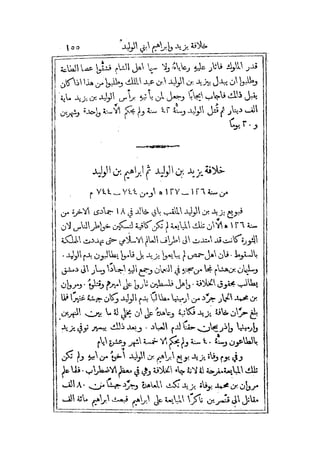 خلافة يزيد وابراهيم ابني الوليد ١٥٥
قدر الملوك فاثار عليهِ رعاياهُ ولا سيما اهل الشام فشقُّوا عصا الطاعة
وطلبوا ان يبدل بيزيد بن الوليد ابن عبد الملك وطلبوا من هذا اذا كان
يقبل ذلك فاجاب ايجابًا وجعل لمن يأتيهِ برأس الوليد بن يزيد ماية
الف دينار ثم قُتل الوليد وسنهُ ٤٢ سنة ولم يحكم الَّا سنة واحدة وشهرين
و ٢٠ يومًا
خلافة يزيد بن الوليد ثم ابراهيم بن الوليد
من سنة ١٢٦ – ١٢٧ ه او من ٧٤٤ – ٧٤٤ م
فبويع يزيد بن الوليد الملقب بابي خالد في ١٨ جمادى الاخرة من
سنة ١٢٦ ه الَّا ان تلك المبايعة لم تكن كافية لتسكين خواطر الناس لان
الثورة كانت قد امتدت الى اطراف العالم الاسلامي حتى تهددت المملكة
بالسقوط. فان اهل حمص لم يبايعوا يزيد بل قاموا يطالبون بدم الوليد.
وسليمان بن هشام نجا من سجنهِ في النعمان وجمع اليهِ اجنادًا وسار الى دمشق
يطالب بحقوق الخلافة. واهل فلسطين ثاروا على اميرهم وقتلوهُ. ومروان
بن محمد الحمار جرَّد من ارمينيا مطالبًا بدم الوليد وكان جيشهُ غفيرًا فلما
بلغ حرَّان خافهُ يزيد فكاتبهُ وعاهدهُ على ان يخلي لهُ ما بين النهرين
وارمينيا واذربيجان حقنًا لدم العباد. وبعد ذلك بيسير توفي يزيد
بالطاعون وسنهُ ٤٠ سنة ولم يحكم الَّا خمسة اشهر وعشرة ايام
وفي يوم وفاة يزيد بويع ابراهيم بن الوليد اخوهُ من ابيهِ ولم تكن
تلك المبايعة مفرحة لهُ لانهُ جاء الخلافة وهي في معظم الاضطراب. فلما علم
مروان بن محمد بوفاة يزيد نكث المعاهدة وجرَّد جيشًا من ٨٠ الف
مقاتل الى قنسرين ناكرًا المبايعة على ابراهيم فبعث ابراهيم مائة الف